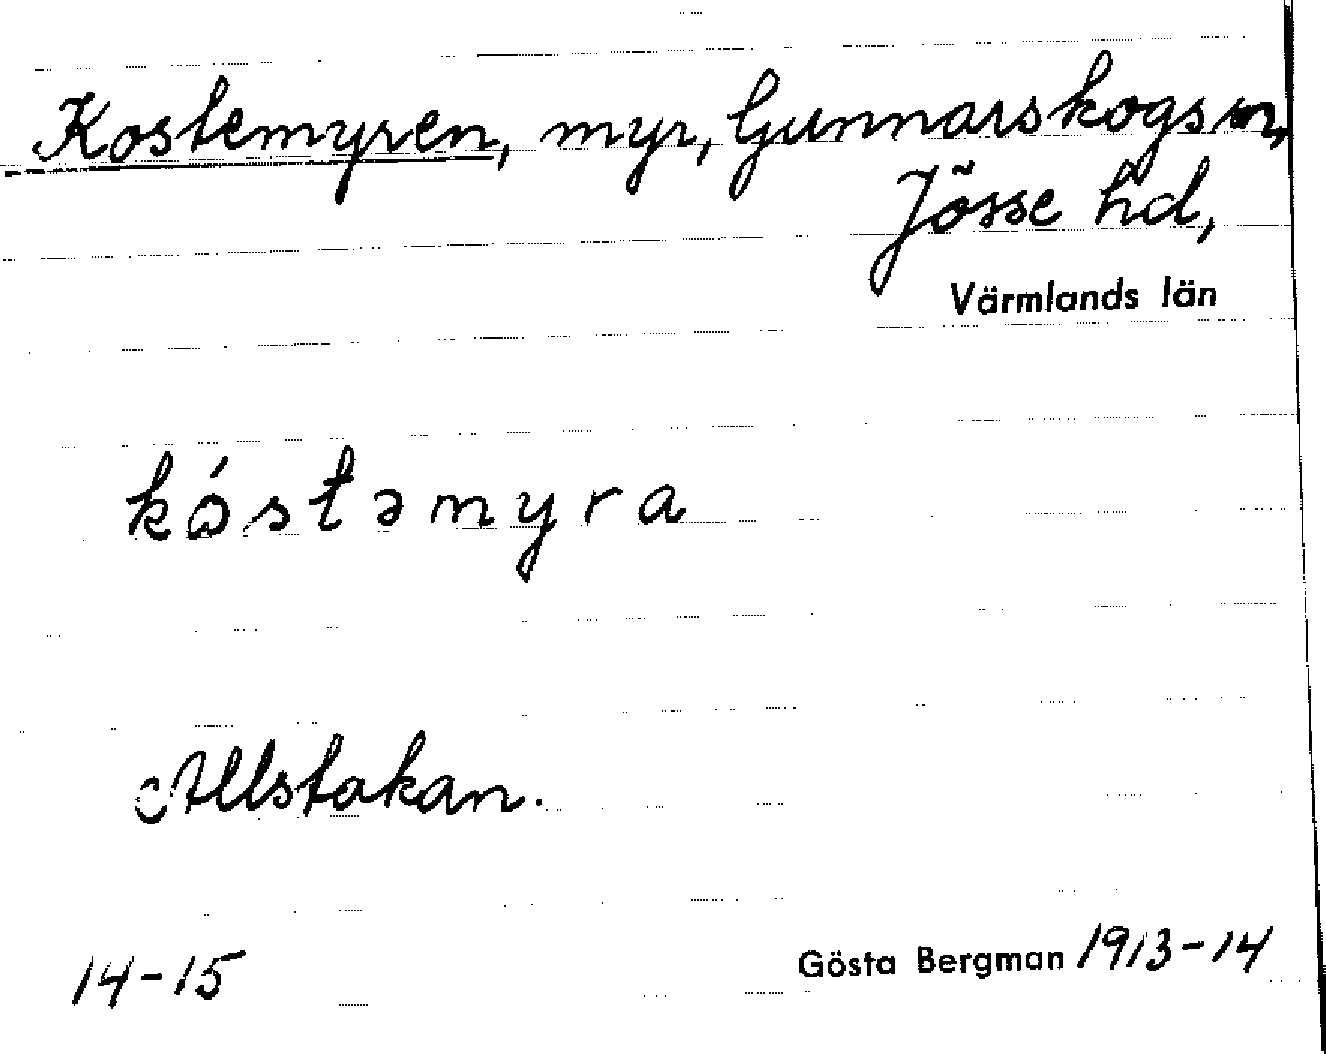 Kostemyren, myr, Gunnarskogs sn,
Jösse hd,
Värmlands län
kóstəmyra
Allstakan.
14-15
Gösta Bergman 1913-14